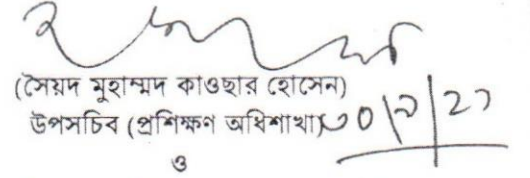 (সৈয়দ মুহাম্মদ কাওছার হোসেন)
উপসচিব (প্রশিক্ষণ অধিশাখা)
ও